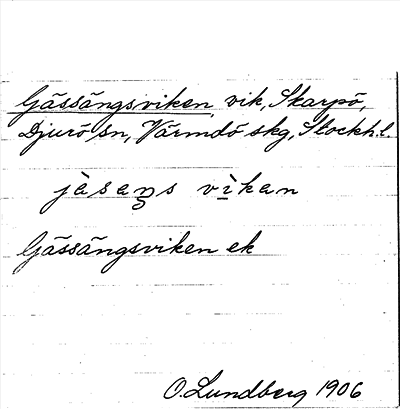 Gässängsviken, vik, Skarpö,
Djurö sn, Värmdö skg, Stockh.l.
jàsaŋs vìkan
Gässängsviken ek
O. Lundberg 1906